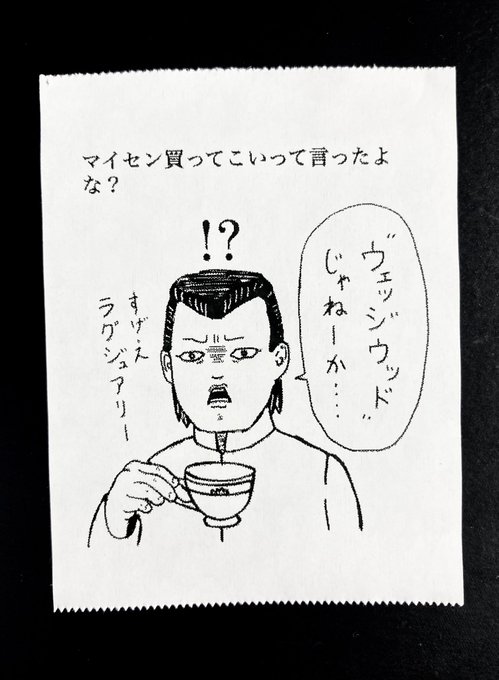 マイセン買ってこいって言ったよ
な？
!?
"ヴェッジウッド"
じゃねーか‥‥
すげーえ
ラグジュアリー